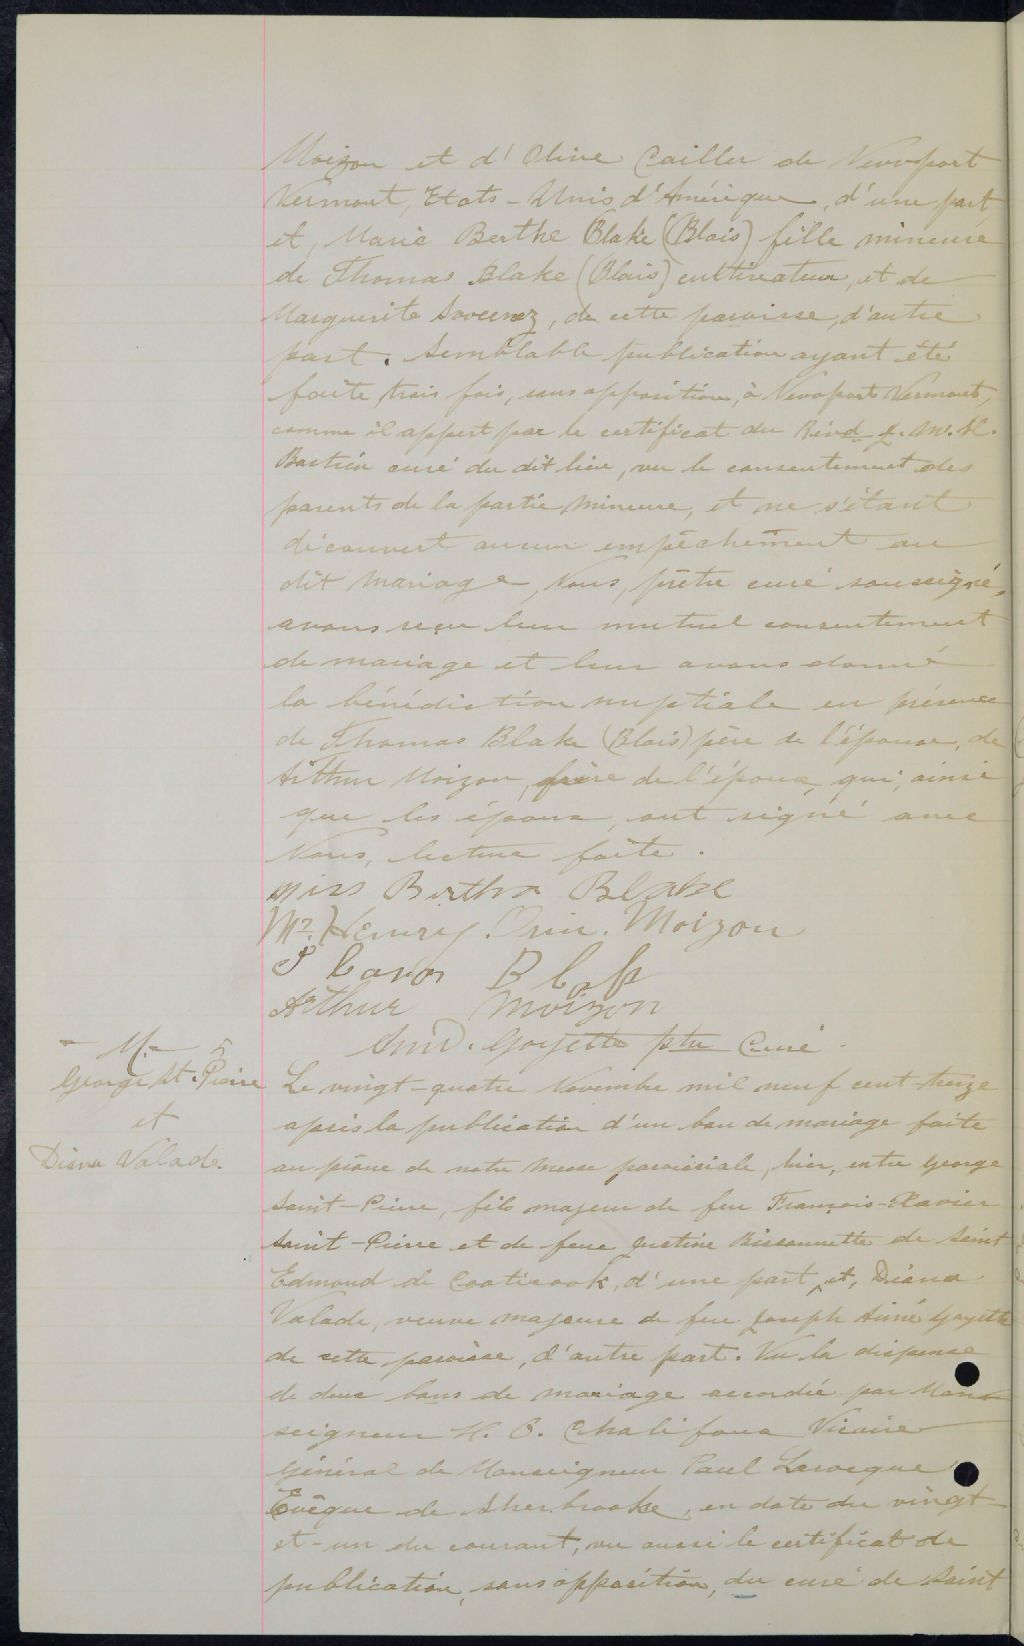 Moizon et d'Olive Cailler de Newport
Vermont, Etats-Unis d'Amérique, d'une part
et, Marie Berthe Blake (Blais) fille mineure
de Thomas Blake (Blais) cultivateur, et de
Marguerite, de cette paroisse, d'autre
part. Semblable publication ayant été
faite trois fois, sans opposition, à Newport Vermont,
comme il appert par le certificat du Révd J. M. A.
Bastien curé du dit lieu, vu le consentement des
parents de la partie mineure, et ne s'étant
découvert aucun empêchement au
dit mariage, Nous, prêtre curé soussigné,
avons reçu leur mutuel consentement
de mariage et leur avons donné
la bénédiction nuptiale en présence
de Thomas Blake (Blais) père de l'épouse, de
Arthur Moizon, frère de l'époux, qui, ainsi
que les époux, ont signé avec
Nous, lecture faite.
Miss Bertha Blake
Mr. Henry. Orin. Moizon
Arthur Moizon
Amd. Goyette ptre Curé.
M. 5
George St. Pierre
et
Diana Valade.
Le vingt-quatre Novembre mil neuf cent treize
après la publication d'un ban de mariage faite
au prône de notre Messe paroissiale, hier, entre George
Saint-Pierre, fils majeur de feu François-Xavier
Saint-Pierre et de feue Justine Bissonnette de Saint
Edmond de Coaticook, d'une part, et, Diana
Valade, veuve majeure de feu Joseph Aimé Goyette
de cette paroisse, d'autre part. Vu la dispense
de deux bans de mariage accordée par Mon
seigneur H. O. Chalifoux Vicaire
Général de Monseigneur Paul Larocque
Evêque de Sherbrooke, en date du vingt
et-un du courant, vu aussi le certificat de
publication, sans opposition, du curé de Saint